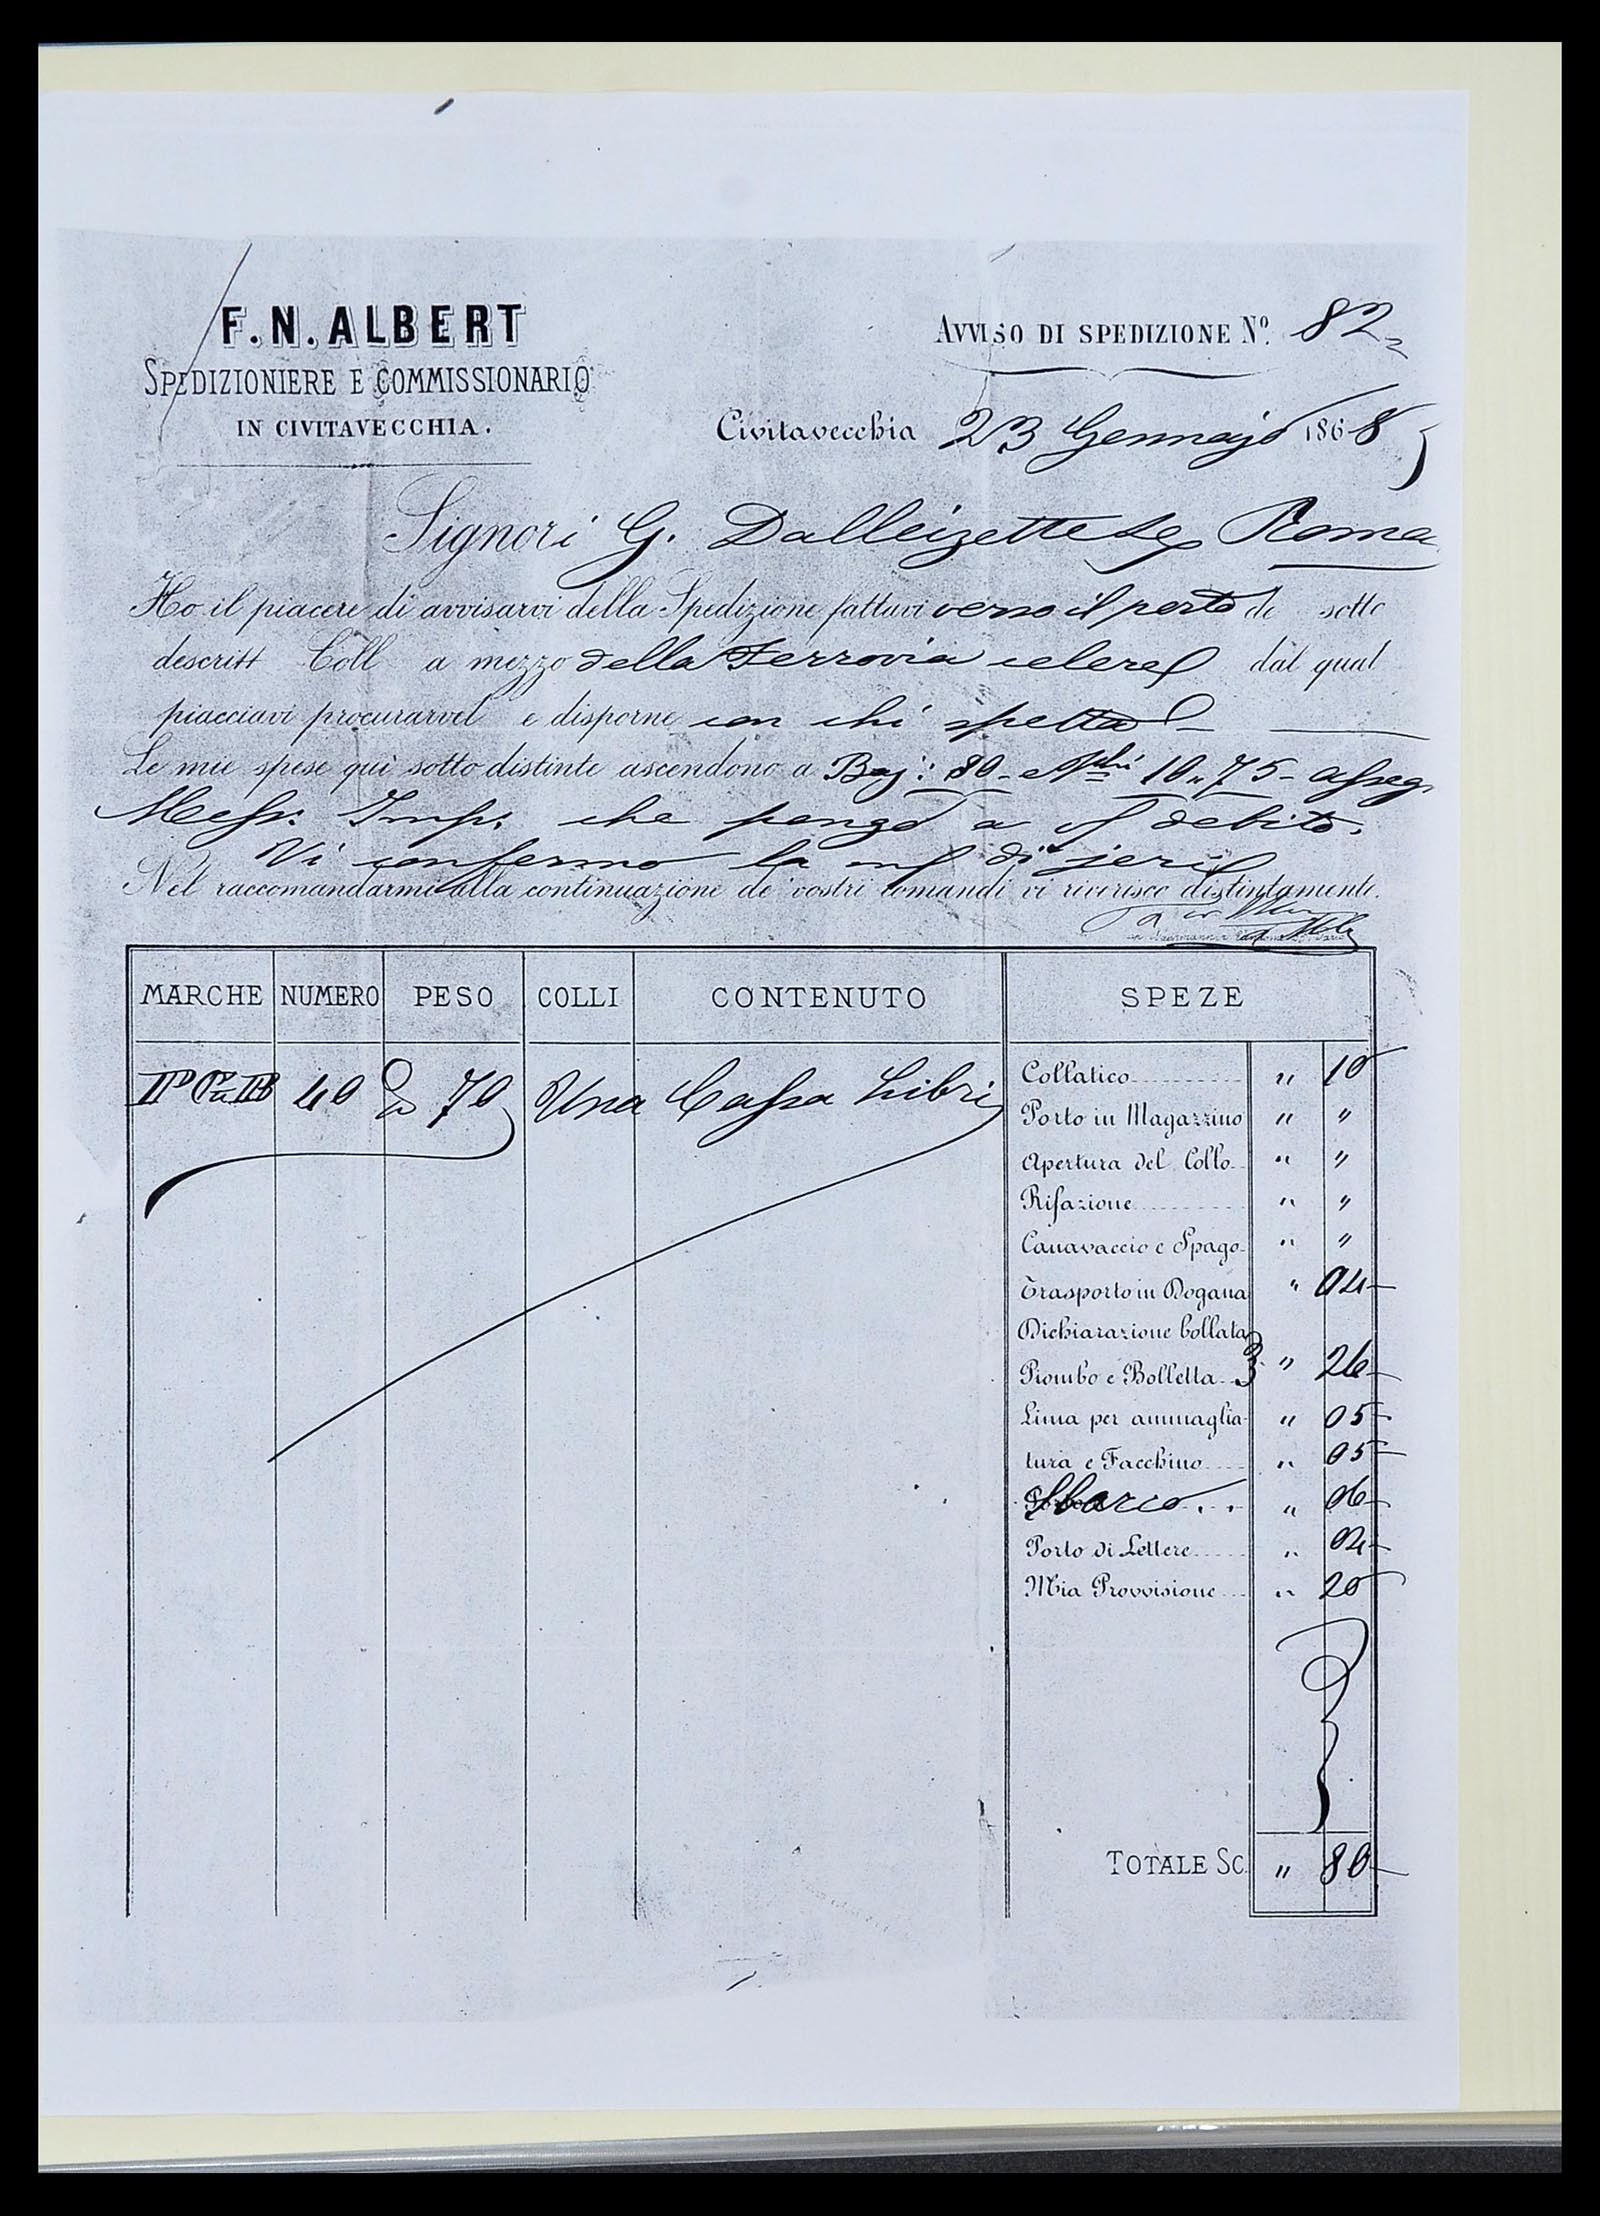 F. N. ALBERT
SPEDIZIONIERE E COMMISSIONARIO
IN CIVITAVECCHIA.
AVVISO DI SPEDIZIONE Nº. 82
Civitavecchia 23 Gennajo 1868
Signori G. Dalleizette Roma
Ho il piacere di avvisarvi della Spedizione fattavi verso il porto de sotto
descritt Coll a mezzo della Ferrovia celere dal qual
piacciavi procurarvel e disporne con chi spetta
Le mie spese qui sotto distinte ascendono a Baj: 80 - e 10,,75 -
Mess. Imp. che pongo a debito.
Vi confermo la di jeri
Nel raccomandarmi alla continuazione de' vostri comandi vi riverisco distintamente.
MARCHE NUMERO PESO COLLI CONTENUTO SPEZE
40 70 Una Cassa Libri
Collatico " 10
Porto in Magazzino " "
Apertura del Collo " "
Rifazione " "
Canavaccio e Spago " "
Trasporto in Dogana " 04
Dichiarazione bollata
Piombo e Bolletta 3 " 26
Lima per ammaglia- " 05
tura e Facchino " 05
Sbarco " 06
Porto di Lettere " 04
Mia Provvisione " 20
TOTALE SC. " 80